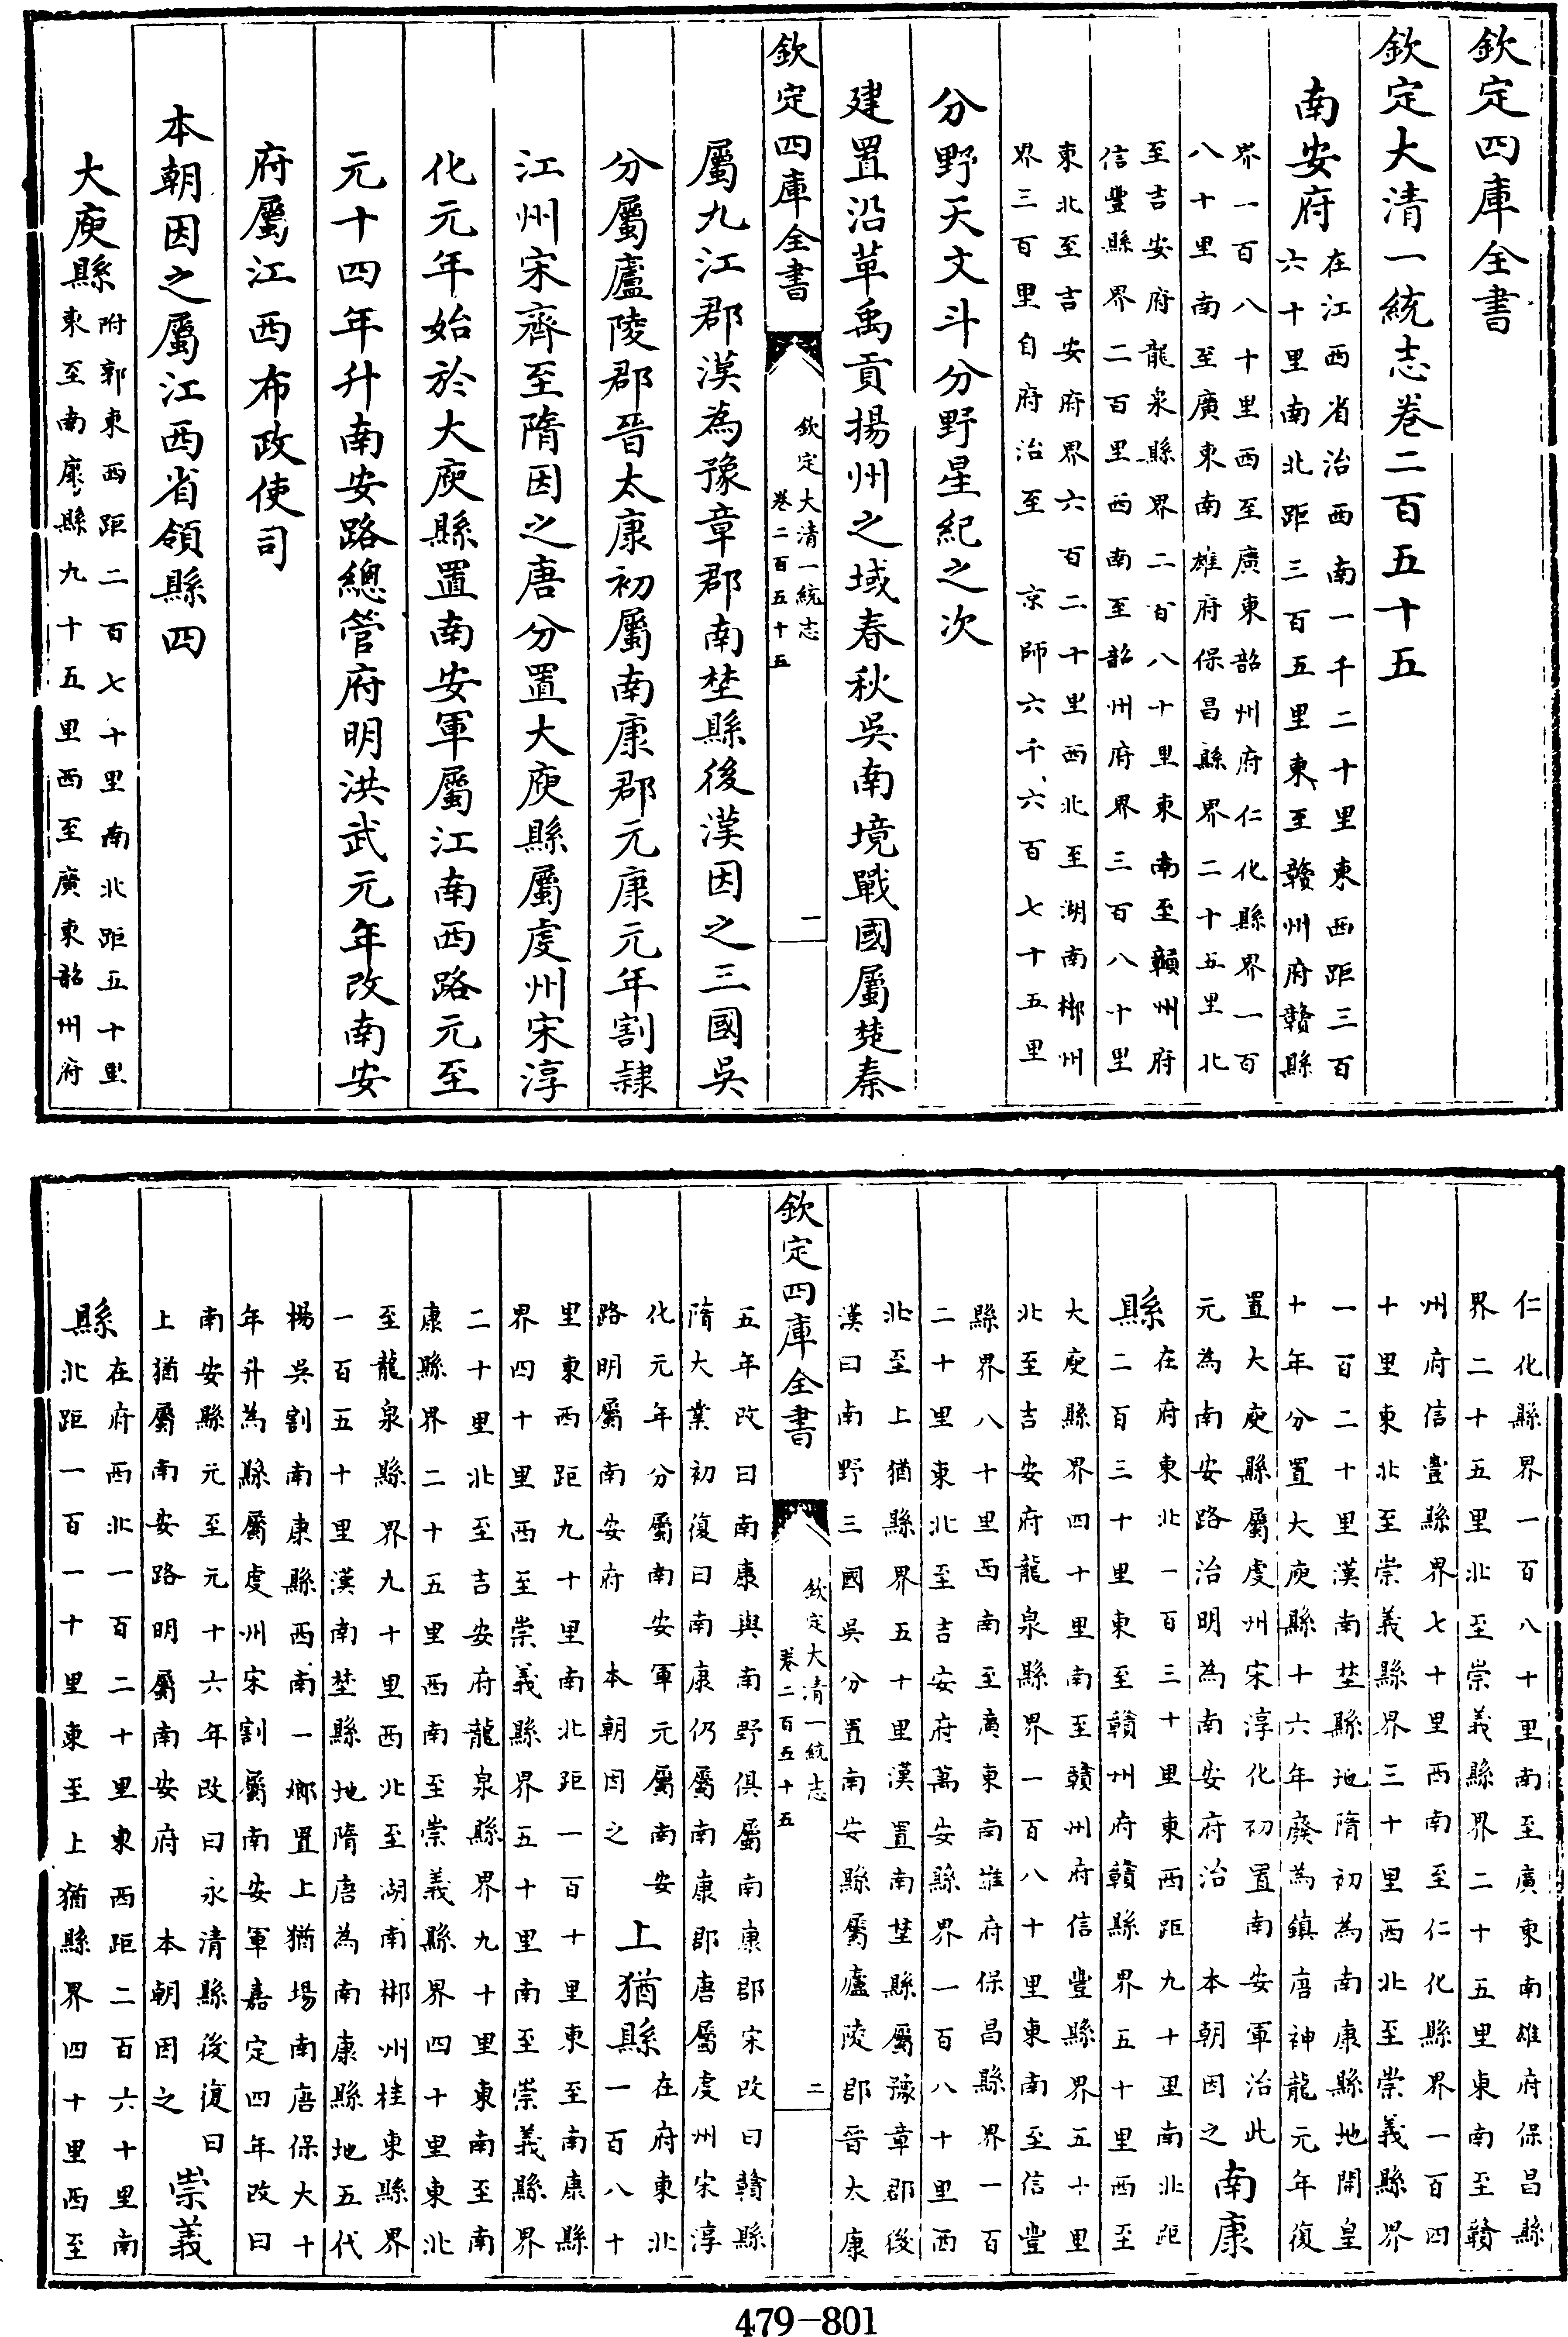 欽定四庫全書
欽定大清一統志卷二百五十五
南安府在江西省治西南一千二十里東西距三百
六十里南北距三百五里東至贛州府贛縣
界一百八十里西至廣東韶州府仁化縣界一百
八十里南至廣東南雄府保昌縣界二十五里北
至吉安府龍泉縣界二百八十里東南至贛州府
信豐縣界二百里西南至韶州府界三百八十里
東北至吉安府界六百二十里西北至湖南郴州
界三百里自府治至京師六千六百七十五里
分野天文斗分野星紀之次
建置沿革禹貢揚州之域春秋吳南境戰國屬楚秦
欽定四庫全書
欽定大清一統志
卷二百五十五
一
屬九江郡漢為豫章郡南埜縣後漢因之三國吳
分屬廬陵郡晉太康初屬南康郡元康元年割隷
江州宋齊至隋因之唐分置大庾縣屬虔州宋淳
化元年始於大庾縣置南安軍屬江南西路元至
元十四年升南安路總管府明洪武元年改南安
府屬江西布政使司
本朝因之屬江西省領縣四
大庾縣附郭東西距二百七十里南北距五十里
東至南康縣九十五里西至廣東韶州府
仁化縣界一百八十里南至廣東南雄府保昌縣
界二十五里北至崇義縣界二十五里東南至贛
州府信豐縣界七十里西南至仁化縣界一百四
十里東北至崇義縣界三十里西北至崇義縣界
一百二十里漢南埜縣地隋初為南康縣地開皇
十年分置大庾縣十六年廢為鎮唐神龍元年復
置大庾縣屬虔州宋淳化初置南安軍治此
元為南安路治明為南安府治本朝因之南康
縣在府東北一百三十里東西距九十里南北距
二百三十里東至贛州府贛縣界五十里西至
大庾縣界四十里南至贛州府信豐縣界五十里
北至吉安府龍泉縣界一百八十里東南至信豐
縣界八十里西南至廣東南雄府保昌縣界一百
二十里東北至吉安府萬安縣界一百八十里西
北至上猶縣界五十里漢置南埜縣屬豫章郡後
漢曰南野三國吳分置南安縣屬廬陵郡晉太康
欽定四庫全書
欽定大清一統志
卷二百五十五
二
五年改曰南康與南野俱屬南康郡宋改曰贛縣
隋大業初復曰南康仍屬南康郡唐屬虔州宋淳
化元年分屬南安軍元屬南安
路明屬南安府本朝因之上猶縣在府東北
一百八十
里東西距九十里南北距一百十里東至南康縣
界四十里西至崇義縣界五十里南至崇義縣界
二十里北至吉安府龍泉縣界九十里東南至南
康縣界二十五里西南至崇義縣界四十里東北
至龍泉縣界九十里西北至湖南郴州桂東縣界
一百五十里漢南埜縣地隋唐為南康縣地五代
楊吳割南康縣西南一鄉置上猶場南唐保大十
年升為縣屬虔州宋割屬南安軍嘉定四年改曰
南安縣元至元十六年改曰永清縣後復曰
上猶屬南安路明屬南安府本朝因之崇義
縣在府西北一百二十里東西距二百六十里南
北距一百一十里東至上猶縣界四十里西至
479-801